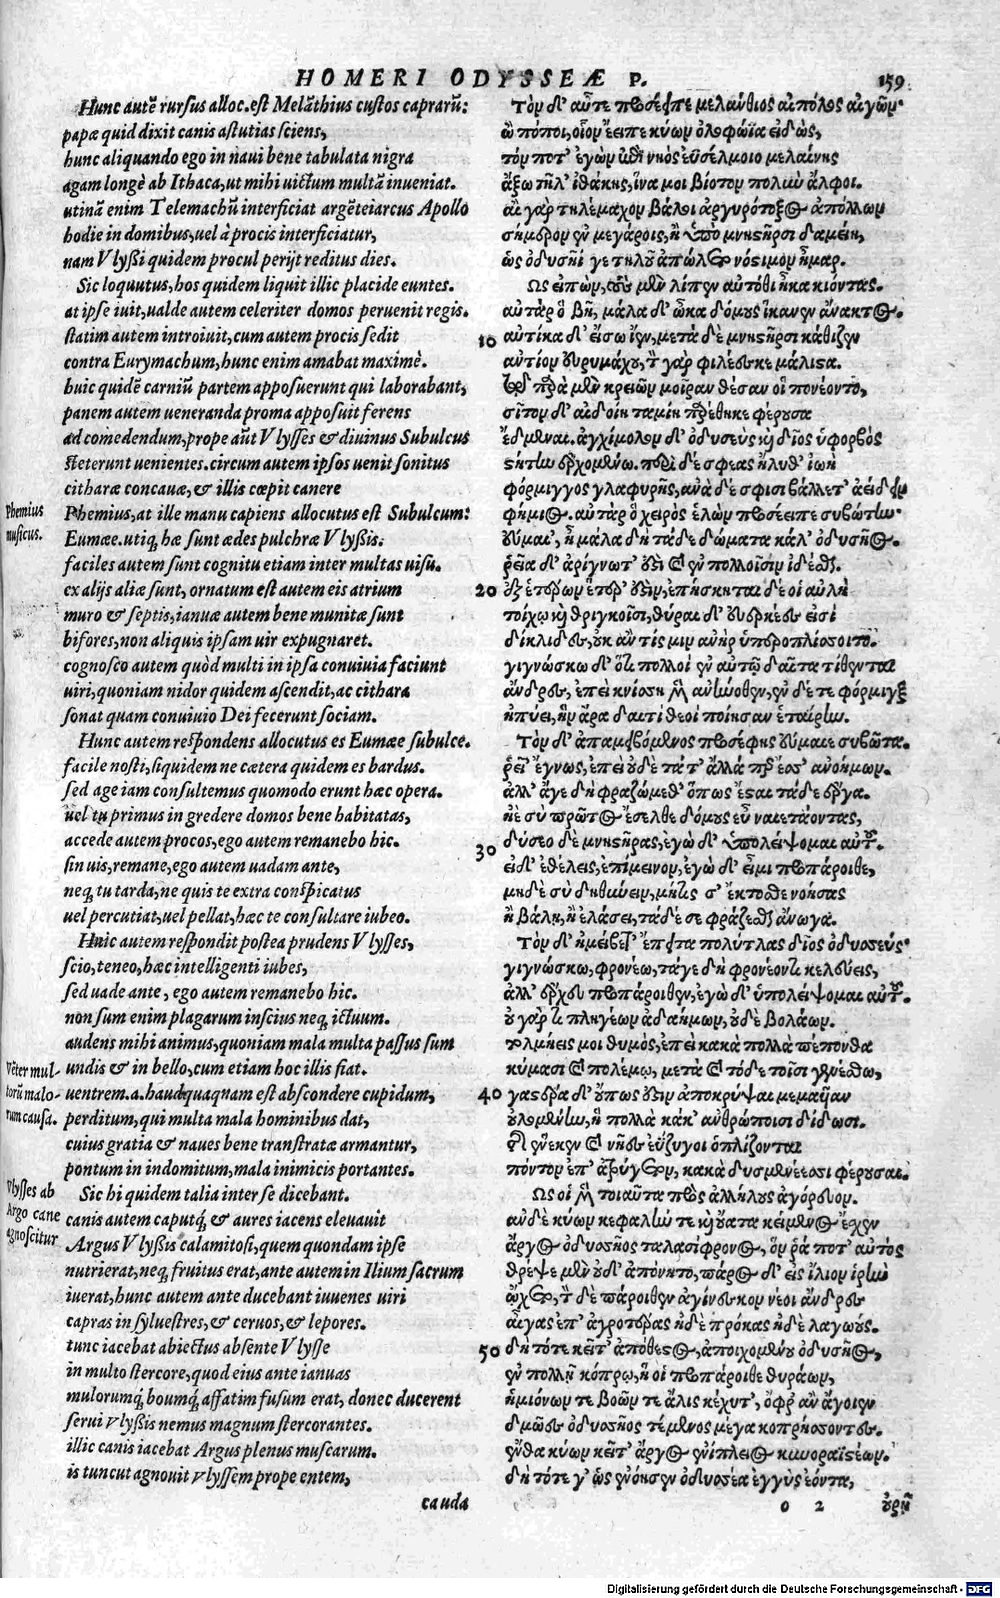 HOMERI ODYSSEÆ P.
159
Hunc autē rursus alloc. est Melāthius custos caprarū:
papæ quid dixit canis astutias sciens,
hunc aliquando ego in naui bene tabulata nigra
agam longè ab Ithaca, ut mihi uictum multā inueniat.
utinā enim Telemachū interficiat argēteiarcus Apollo
hodie in domibus, uel à procis interficiatur,
nam Vlyssi quidem procul perijt reditus dies.
Sic loquutus, hos quidem liquit illic placide euntes.
at ipse iuit, ualde autem celeriter domos peruenit regis.
statim autem introiuit, cum autem procis sedit
contra Eurymachum, hunc enim amabat maximè.
huic quidē carniū partem apposuerunt qui laborabant,
panem autem ueneranda proma apposuit ferens
ad comedendum, prope aūt Vlysses & diuinus Subulcus
steterunt uenientes. circum autem ipsos uenit sonitus
citharæ concauæ, & illis cœpit canere
Phemius
musicus.
Phemius, at ille manu capiens allocutus est Subulcum:
Eumæe. utiq; hæ sunt ædes pulchræ Vlyssis.
faciles autem sunt cognitu etiam inter multas uisu.
ex alijs aliæ sunt, ornatum est autem eis atrium
muro & septis, ianuæ autem bene munitæ sunt
bifores, non aliquis ipsam uir expugnaret.
cognosco autem quòd multi in ipsa conuiuia faciunt
uiri, quoniam nidor quidem ascendit, ac cithara
sonat quam conuiuio Dei fecerunt sociam.
Hunc autem respondens allocutus es Eumæe subulce.
facile nosti, siquidem ne cætera quidem es bardus.
sed age iam consultemus quomodo erunt hæc opera.
uel tu primus in gredere domos bene habitatas,
accede autem procos, ego autem remanebo hic.
sin uis, remane, ego autem uadam ante,
neq; tu tarda, ne quis te extra conspicatus
uel percutiat, uel pellat, hæc te consultare iubeo.
Huic autem respondit postea prudens Vlysses,
scio, teneo, hæc intelligenti iubes,
sed uade ante, ego autem remanebo hic.
non sum enim plagarum inscius neq; ictuum.
audens mihi animus, quoniam mala multa passus sum
Vēter mul-
torū malo-
rum causa.
undis & in bello, cum etiam hoc illis fiat.
uentrem .a. haudquaquam est abscondere cupidum,
perditum, qui multa mala hominibus dat,
cuius gratia & naues bene transtratæ armantur,
pontum in indomitum, mala inimicis portantes.
Vlysses ab
Argo cane
agnoscitur
Sic hi quidem talia inter se dicebant.
canis autem caputq́; & aures iacens eleuauit
Argus Vlyssis calamitosi, quem quondam ipse
nutrierat, neq; fruitus erat, ante autem in Ilium sacrum
iuerat, hunc autem ante ducebant iuuenes uiri
capras in syluestres, & ceruos, & lepores.
tunc iacebat abiectus absente Vlysse
in multo stercore, quod eius ante ianuas
mulorumq́; boumq́; affatim fusum erat, donec ducerent
serui Vlyssis nemus magnum stercorantes.
illic canis iacebat Argus plenus muscarum.
is tunc ut agnouit Vlyssem prope entem,
cauda
Τὸν δ' αὖτε προσέειπε μελάνθιος αἰπόλος αἰγῶν·
ὢ πόποι, οἷον ἔειπε κύων ὀλοφώϊα εἰδὼς,
τόν ποτ' ἐγὼν ἐπὶ νηὸς ἐϋσέλμοιο μελαίνης
ἄξω τῆλ' ἰθάκης, ἵνα μοι βίοτον πολὺν ἄλφοι.
αἲ γὰρ τηλέμαχον βάλοι ἀργυρότοξος ἀπόλλων
σήμερον ἐν μεγάροις, ἢ ὑπὸ μνηστῆρσι δαμείη,
ὡς ὀδυσῆί γε τηλοῦ ἀπώλετο νόστιμον ἦμαρ.
Ως εἰπὼν, τοὺς μὲν λίπεν αὐτόθι ἦκα κιόντας.
αὐτὰρ ὁ βῆ, μάλα δ' ὦκα δόμους ἵκανεν ἄνακτος.
10 αὐτίκα δ' εἴσω ἴεν, μετὰ δὲ μνηστῆρσι κάθιζεν
ἀντίον εὐρυμάχου, τὸν γὰρ φιλέεσκε μάλιστα.
τῷ παρὰ μὲν κρειῶν μοῖραν θέσαν οἳ πονέοντο,
σῖτον δ' αἰδοίη ταμίη παρέθηκε φέρουσα
ἔδμεναι. ἀγχίμολον δ' ὀδυσεὺς καὶ δῖος ὑφορβὸς
στήτην ἐρχομένω. περὶ δέ σφεας ἤλυθ' ἰωὴ
φόρμιγγος γλαφυρῆς, ἀνὰ δέ σφισι βάλλετ' ἀείδειν
φήμιος. αὐτὰρ ὁ χειρὸς ἑλὼν προσέειπε συβώτην·
εὔμαι', ἦ μάλα δὴ τάδε δώματα κάλ' ὀδυσῆος.
ῥεῖα δ' ἀρίγνωτ' ἐστὶ καὶ ἐν πολλοῖσιν ἰδέσθαι.
20 ἐξ ἑτέρων ἕτερ' ἐστὶν, ἐπήσκηται δέ οἱ αὐλὴ
τοίχῳ καὶ θριγκοῖσι, θύραι δ' εὐερκέες εἰσὶ
δίκλιδες, οὐκ ἄν τίς μιν ἀνὴρ ὑπεροπλίσσοιτο.
γιγνώσκω δ' ὅτι πολλοὶ ἐν αὐτῷ δαῖτα τίθενται
ἄνδρες, ἐπεὶ κνίσση μὲν ἀνήνοθεν, ἐν δέ τε φόρμιγξ
ἠπύει, ἣν ἄρα δαιτὶ θεοὶ ποίησαν ἑταίρην.
Τὸν δ' ἀπαμειβόμενος προσέφης εὔμαιε συβῶτα.
ῥεῖ' ἔγνως, ἐπεὶ οὐδὲ τά τ' ἄλλά περ ἔσσ' ἀνοήμων.
ἀλλ' ἄγε δὴ φραζώμεθ' ὅπως ἔσται τάδε ἔργα.
ἠὲ σὺ πρῶτος ἔσελθε δόμους εὖ ναιετάοντας,
30 δύσεο δὲ μνηστῆρας, ἐγὼ δ' ὑπολείψομαι αὐτοῦ.
εἰ δ' ἐθέλεις, ἐπίμεινον, ἐγὼ δ' εἶμι προπάροιθε,
μηδὲ σὺ δηθύνειν, μήτις σ' ἔκτοσθε νοήσας
ἢ βάλῃ, ἢ ἐλάσει, τάδε σε φράζεσθαι ἄνωγα.
Τὸν δ' ἠμείβετ' ἔπειτα πολύτλας δῖος ὀδυσσεύς·
γιγνώσκω, φρονέω, τάγε δὴ φρονέοντι κελεύεις,
ἀλλ' ἔρχευ προπάροιθεν, ἐγὼ δ' ὑπολείψομαι αὐτοῦ.
οὐ γάρ τι πληγέων ἀδαήμων, οὐδὲ βολάων.
τολμήεις μοι θυμὸς, ἐπεὶ κακὰ πολλὰ πέπονθα
κύμασι καὶ πολέμῳ, μετὰ καὶ τόδε τοῖσι γενέσθω,
40 γαστέρα δ' οὔπως ἐστὶν ἀποκρύψαι μεμαυῖαν
οὐλομένην, ἣ πολλὰ κάκ' ἀνθρώποισι δίδωσι.
τῆς ἕνεκεν καὶ νῆες ἐΰζυγοι ὁπλίζονται
πόντον ἐπ' ἀτρύγετον, κακὰ δυσμενέεσσι φέρουσαι.
Ως οἱ μὲν τοιαῦτα πρὸς ἀλλήλους ἀγόρευον.
ἂν δὲ κύων κεφαλήν τε καὶ οὔατα κείμενος ἔχεν
ἄργος ὀδυσσῆος ταλασίφρονος, ὅν ῥά ποτ' αὐτὸς
θρέψε μὲν οὐδ' ἀπόνητο, πάρος δ' εἰς ἴλιον ἱρὴν
ᾤχετο, τὸν δὲ πάροιθεν ἀγίνεσκον νέοι ἄνδρες
αἶγας ἐπ' ἀγροτέρας ἠδὲ πρόκας ἠδὲ λαγωούς.
50 δὴ τότε κεῖτ' ἀπόθεστος, ἀποιχομένου ὀδυσῆος,
ἐν πολλῇ κόπρῳ, ἥ οἱ προπάροιθε θυράων,
ἡμιόνων τε βοῶν τε ἅλις κέχυτ', ὄφρ' ἂν ἄγοιεν
δμῶες ὀδυσσῆος τέμενος μέγα κοπρήσοντες.
ἔνθα κύων κεῖτ' ἄργος ἐνίπλειος κυνοραϊστέων.
δὴ τότε γ' ὡς ἐνόησεν ὀδυσσέα ἐγγὺς ἐόντα,
o 2
οὐρῇ
Digitalisierung gefördert durch die Deutsche Forschungsgemeinschaft - DFG